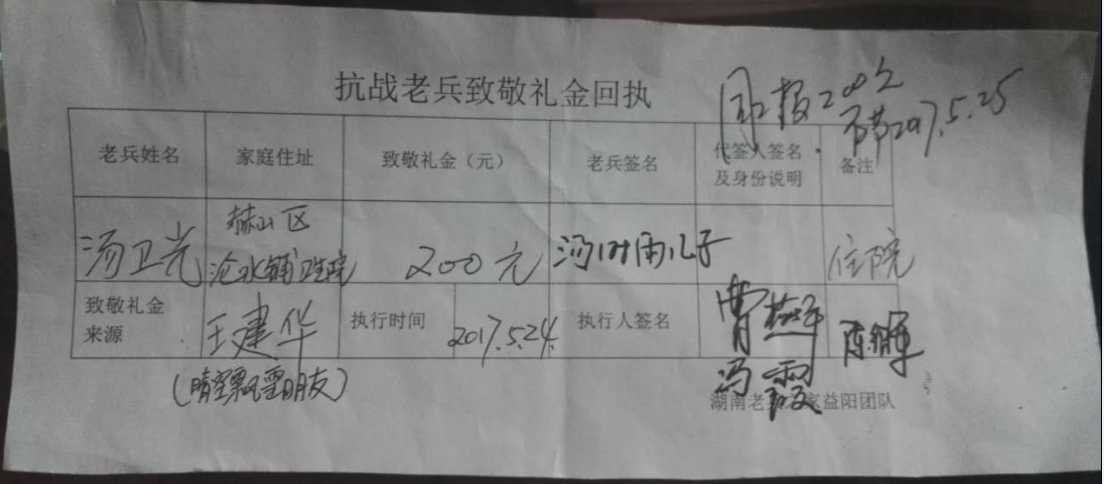 抗战老兵致敬礼金回执
同报200元
2017.5.25
老兵姓名 家庭住址 致敬礼金（元） 老兵签名 代签人签名及身份说明 备注
汤卫光 赫山区沧水铺卫生院 200元 汤时雨儿子 住院
致敬礼金来源 王建华 执行时间 2017.5.24. 执行人签名 曹燕平 陈辉
（晴空飘雪朋友） 冯霞
湖南老兵之家益阳团队